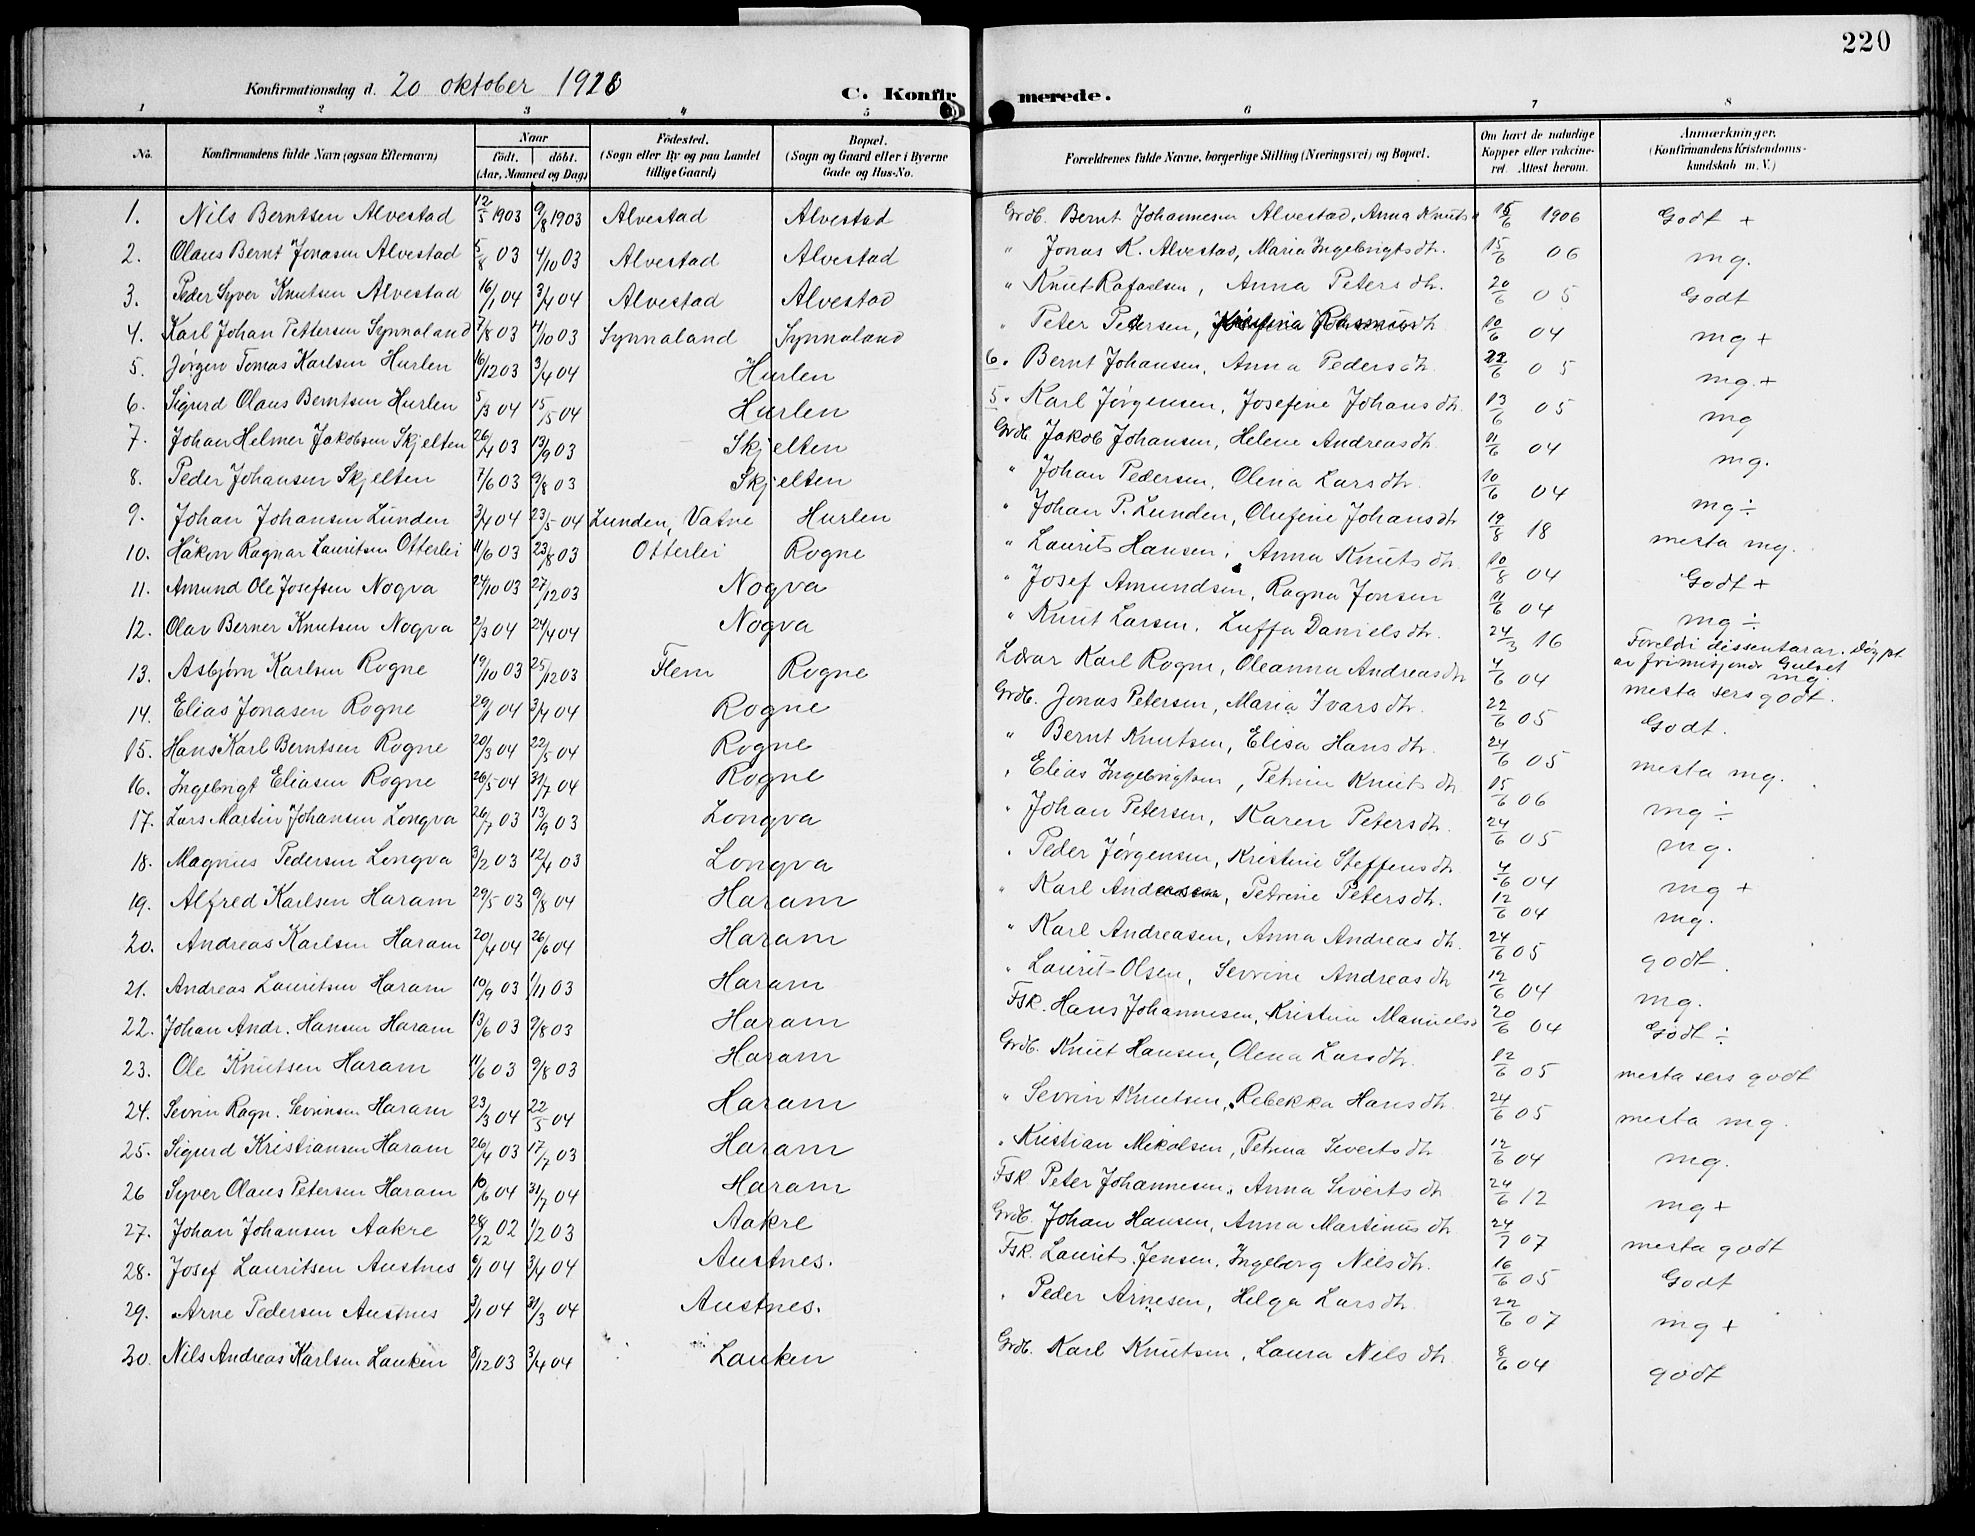 220
Konfirmationsdag d. 20 oktober 1918
C. Konfirmerede.
1 2 3 4 5 6 7 8
No. Konfirmandens fulde Navn (ogsaa Efternavn) Naar født. døbt. (Aar, Maaned og Dag) Fødested. (Sogn eller By og paa Landet tillige Gaard) Bopæl. (Sogn og Gaard eller i Byerne Gade og Hus-No. Forældrenes fulde Navne, borgerlige Stilling (Næringsvei) og Bopæl. Om havt de naturlige Kopper eller vakcineret. Attest herom. Anmærkninger. (Konfirmandens Kristendomskundskab m. V.)
1. Nils Berntsen Alvestad 12/5 1903 9/8 1903 Alvestad Alvestad Grdb. Bernt Johannesen Alvestad, Anna Knuts 15/6 1906 Godt +
2. Olaus Bernt Jonasen Alvestad 5/8 03 4/10 03 Alvestad Alvestad " Jonas K. Alvestad, Maria Ingebrigtsdtr. 15/6 06 mg.
3. Peder Syver Knutsen Alvestad 16/1 04 3/4 04 Alvestad Alvestad " Knut Rafaelsen, Anna Petersdtr. 20/6 05 Godt
4. Karl Johan Pettersen Synnaland 7/8 03 11/10 03 Synnaland Synnaland " Peter Pedersen, Rasmusdtr 10/6 04 mg +
5. Jørgen Tomas Karlsen Hurlen 16/12 03 3/4 04 Hurlen 6. Bernt Johansen, Anna Pedersdtr. 22/6 05 mg. +
6. Sigurd Olaus Berntsen Hurlen 5/3 04 15/5 04 Hurlen 5. Karl Jørgensen, Josefine Johansdtr. 13/6 05 mg
7. Johan Helmer Jakobsen Skjelten 26/4 03 13/9 03 Skjelten Grdb. Jakob Johansen, Helene Andreasdtr. 11/6 04 mg.
8. Peder Johansen Skjelten 7/6 03 9/8 03 Skjelten " Johan Pedersen, Olina Larsdtr. 10/6 04 mg ÷
9. Johan Johansen Lunden 3/4 04 23/5 04 Lunden, Vatne Hurlen " Johan P. Lunden, Olufine Johansdtr 19/8 18 mesta mg.
10. Håken Ragnar Lauritsen Otterlei 11/6 03 23/8 03 Otterlei Rogne " Laurits Hansen, Anna Knutsdtr. 10/8 04 Godt +
11. Amund Ole Josefsen Nogva 24/10 03 27/12 03 Nogva " Josef Amundsen, Ragna Jonsen 11/6 04 mg ÷
12. Olav Berner Knutsen Nogva 2/3 04 24/4 04 Nogva " Knut Larsen, Luffa Danielsdtr. 24/3 16 Foreldri dissentarar. Døypt av frimisjonær Gulset mg.
13. Asbjørn Karlsen Rogne 19/10 03 25/12 03 Flem Rogne Lærar Karl Rogne, Oleanna Andreasdtr 4/6 04 mesta sers godt.
14. Elias Jonasen Rogne 29/1 04 3/4 04 Rogne Grdb. Jonas Petersen, Maria Ivarsdtr. 22/6 05 Godt.
15. Hans Karl Berntsen Rogne 20/3 04 22/5 04 Rogne " Bernt Knutsen, Elisa Hansdtr. 24/6 05 mesta mg.
16. Ingebrigt Eliasen Rogne 26/5 04 31/7 04 Rogne " Elias Ingebrigtsen, Petrine Knutsdtr. 15/6 06 mg ÷
17. Lars Martin Johansen Longva 26/7 03 13/9 03 Longva " Johan Petersen, Karen Petersdtr. 24/6 05 mg.
18. Magnus Pedersen Longva 3/2 03 12/4 03 Longva " Peder Jørgensen, Kristine Steffensdtr. 4/6 04 mg +
19. Alfred Karlsen Haram 29/5 03 9/8 04 Haram " Karl Andersen, Petrine Petersdtr. 12/6 04 mg.
20. Andreas Karlsen Haram 20/4 04 26/6 04 Haram " Karl Andreasen, Anna Andreasdtr. 24/6 05 godt.
21. Andreas Lauritsen Haram 10/9 03 1/11 03 Haram " Laurits Olsen, Sevrine Andreasdtr 12/6 04 mg.
22. Johan Andr. Hansen Haram 13/6 03 9/8 03 Haram Fsk. Hans Johannesen, Kristine Manuels 20/6 04 Godt ÷
23. Ole Knutsen Haram 11/6 03 9/8 03 Haram Grdb. Knut Hansen, Olena Larsdtr. 12/6 05 mesta sers godt
24. Sevrin Ragn. Sevrinsen Haram 23/3 04 22/5 04 Haram " Sevrin Knutsen, Rebekka Hansdtr. 24/6 05 mesta mg.
25. Sigurd Kristiansen Haram 26/4 03 17/7 03 Haram " Kristian Mikalsen, Petrina Sivertsdtr. 12/6 04 mg.
26 Syver Olaus Petersen Haram 10/6 04 31/7 04 Haram Fsk Peter Johannesen, Anna Sivertsdtr 24/6 12 mg +
27. Johan Johansen Aakre 28/12 02 1/2 03 Aakre Grdb. Johan Hansen, Anna Martinusdtr 24/7 07 mesta godt
28. Josef Lauritsen Austnes 6/1 04 3/4 04 Austnes. Fsk. Laurits Jensen, Ingeborg Nilsdtr. 16/6 05 Godt
29. Arne Pedersen Austnes 3/1 04 31/3 04 Austnes. " Peder Arnesen, Helga Larsdtr. 22/6 07 mg +
30. Nils Andreas Karlsen Lauken 8/12 03 3/4 04 Lauken Grdb. Karl Knutsen, Laura Nilsdtr 8/6 04 godt